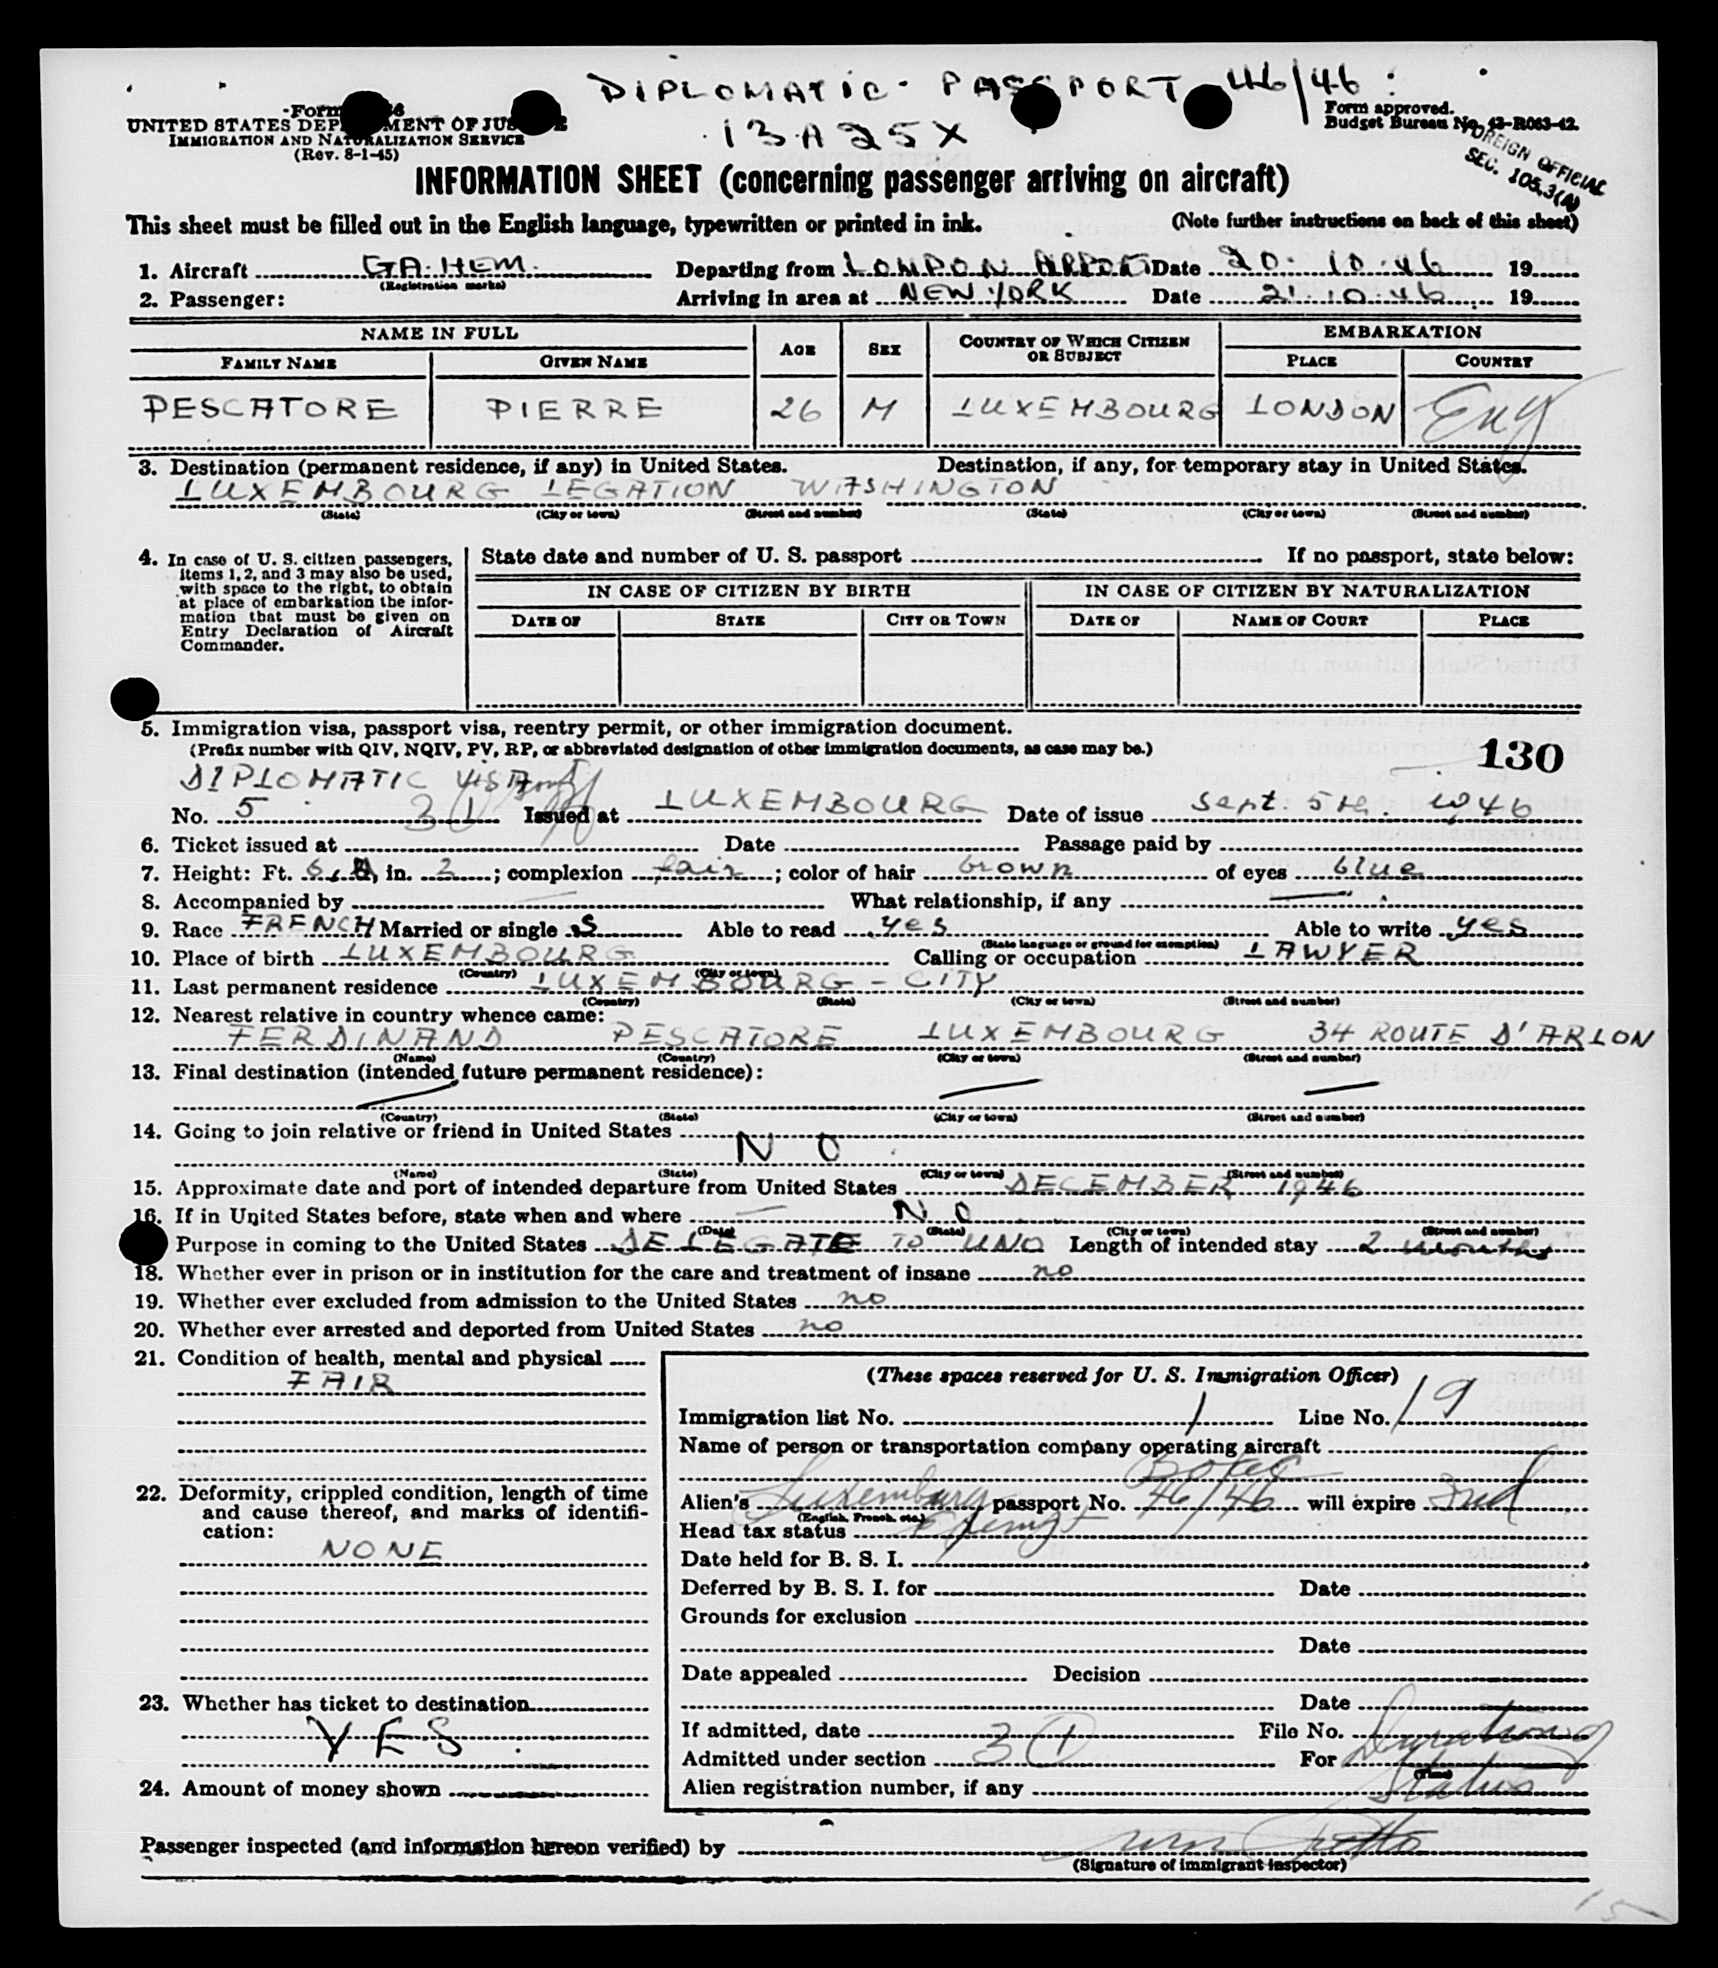 DIPLOMATIC PASSPORT 46/46
13 A 25 X
Form
UNITED STATES DEPARTMENT OF JUSTICE
IMMIGRATION AND NATURALIZATION SERVICE
(Rev. 8-1-45)
Form approved.
Budget Bureau No. 43-R063-42.
FOREIGN OFFICIAL
SEC. 105.3(A)
INFORMATION SHEET (concerning passenger arriving on aircraft)
This sheet must be filled out in the English language, typewritten or printed in ink. (Note further instructions on back of this sheet)
1. Aircraft GA.HEM. Departing from LONDON Date 20.10.46 19
(Registration marks)
2. Passenger: Arriving in area at NEW YORK Date 21.10.46 19
NAME IN FULL AGE SEX COUNTRY OF WHICH CITIZEN OR SUBJECT EMBARKATION
FAMILY NAME GIVEN NAME PLACE COUNTRY
PESCATORE PIERRE 26 M LUXEMBOURG LONDON Eng
3. Destination (permanent residence, if any) in United States. Destination, if any, for temporary stay in United States.
LUXEMBOURG LEGATION WASHINGTON
(State) (City or town) (Street and number) (State) (City or town) (Street and number)
4. In case of U. S. citizen passengers, items 1, 2, and 3 may also be used, with space to the right, to obtain at place of embarkation the information that must be given on Entry Declaration of Aircraft Commander.
State date and number of U. S. passport If no passport, state below:
IN CASE OF CITIZEN BY BIRTH IN CASE OF CITIZEN BY NATURALIZATION
DATE OF STATE CITY OR TOWN DATE OF NAME OF COURT PLACE
5. Immigration visa, passport visa, reentry permit, or other immigration document.
(Prefix number with QIV, NQIV, PV, RP, or abbreviated designation of other immigration documents, as case may be.)
130
DIPLOMATIC VISA
No. 5 3 (1) Issued at LUXEMBOURG Date of issue Sept. 5th. 1946
6. Ticket issued at Date Passage paid by
7. Height: Ft. 6, in. 2; complexion fair; color of hair brown of eyes blue
8. Accompanied by — What relationship, if any —
9. Race FRENCH Married or single S Able to read yes Able to write yes
(State language or ground for exemption)
10. Place of birth LUXEMBOURG Calling or occupation LAWYER
(Country) (City or town)
11. Last permanent residence LUXEMBOURG - CITY
(Country) (State) (City or town) (Street and number)
12. Nearest relative in country whence came:
FERDINAND PESCATORE LUXEMBOURG 34 ROUTE D'ARLON
(Name) (Country) (City or town) (Street and number)
13. Final destination (intended future permanent residence):
(Country) (State) (City or town) (Street and number)
14. Going to join relative or friend in United States
NO
(Name) (State) (City or town) (Street and number)
15. Approximate date and port of intended departure from United States DECEMBER 1946
16. If in United States before, state when and where — NO
(Date) (State) (City or town) (Street and number)
Purpose in coming to the United States DELEGATE TO UNO Length of intended stay 2 months
18. Whether ever in prison or in institution for the care and treatment of insane no
19. Whether ever excluded from admission to the United States no
20. Whether ever arrested and deported from United States no
21. Condition of health, mental and physical
FAIR
22. Deformity, crippled condition, length of time and cause thereof, and marks of identification:
NONE
23. Whether has ticket to destination
YES
24. Amount of money shown
(These spaces reserved for U. S. Immigration Officer)
Immigration list No. 1 Line No. 19
Name of person or transportation company operating aircraft
BOAC
Alien's Luxemburg passport No. 46/46 will expire Ind
(English, French, etc.)
Head tax status Exempt
Date held for B. S. I.
Deferred by B. S. I. for Date
Grounds for exclusion
Date
Date appealed Decision
Date
If admitted, date File No.
Admitted under section 3 (1) For Duration of Status
(Time)
Alien registration number, if any
Passenger inspected (and information hereon verified) by
(Signature of immigrant inspector)
15